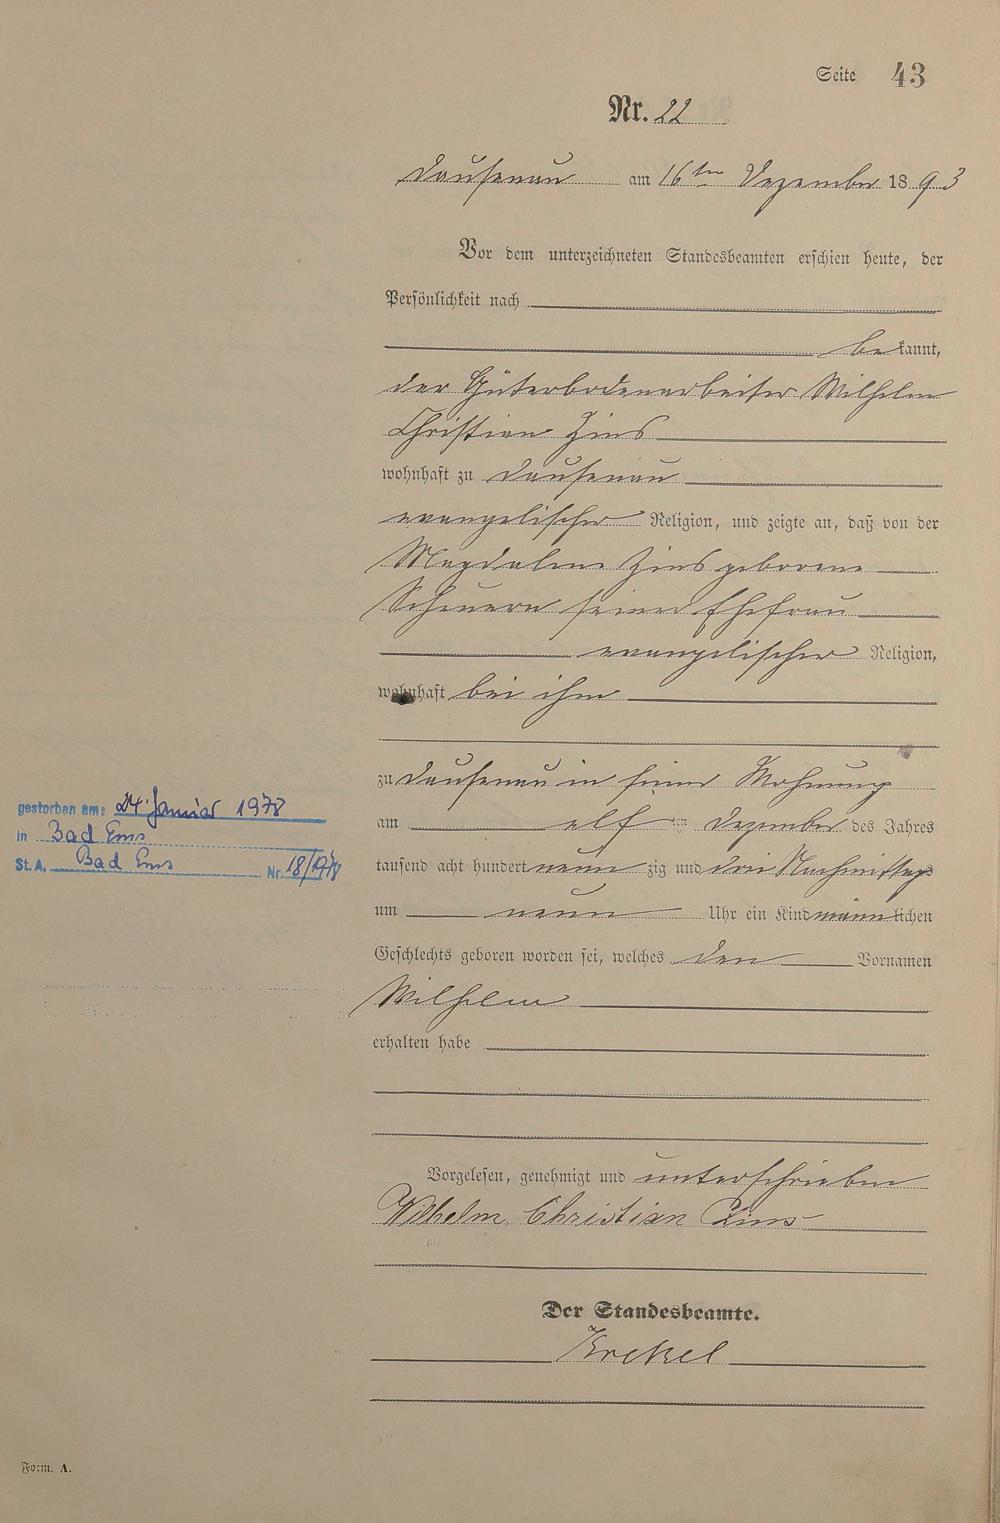 Seite 43
Nr. 22
Dausenau am 16ten Dezember 1893
Vor dem unterzeichneten Standesbeamten erschien heute, der
Persönlichkeit nach
bekannt,
der Güterbodenarbeiter Wilhelm
Christian Zins
wohnhaft zu Dausenau
evangelischer Religion, und zeigte an, daß von der
Magdalena Zins geborene
Scheuern seiner Ehefrau
evangelischer Religion,
wohnhaft bei ihm
zu Dausenau in seiner Wohnung
am elf ten Dezember des Jahres
tausend acht hundert neunzig und drei Nachmittags
um neun Uhr ein Kind männlichen
Geschlechts geboren worden sei, welches den Vornamen
Wilhelm
erhalten habe
Vorgelesen, genehmigt und unterschrieben
Wilhelm Christian Zins
Der Standesbeamte.
Krekel
gestorben am: 24. Januar 1978
in Bad Ems
St. A. Bad Ems Nr. 18/1978
Form. A.